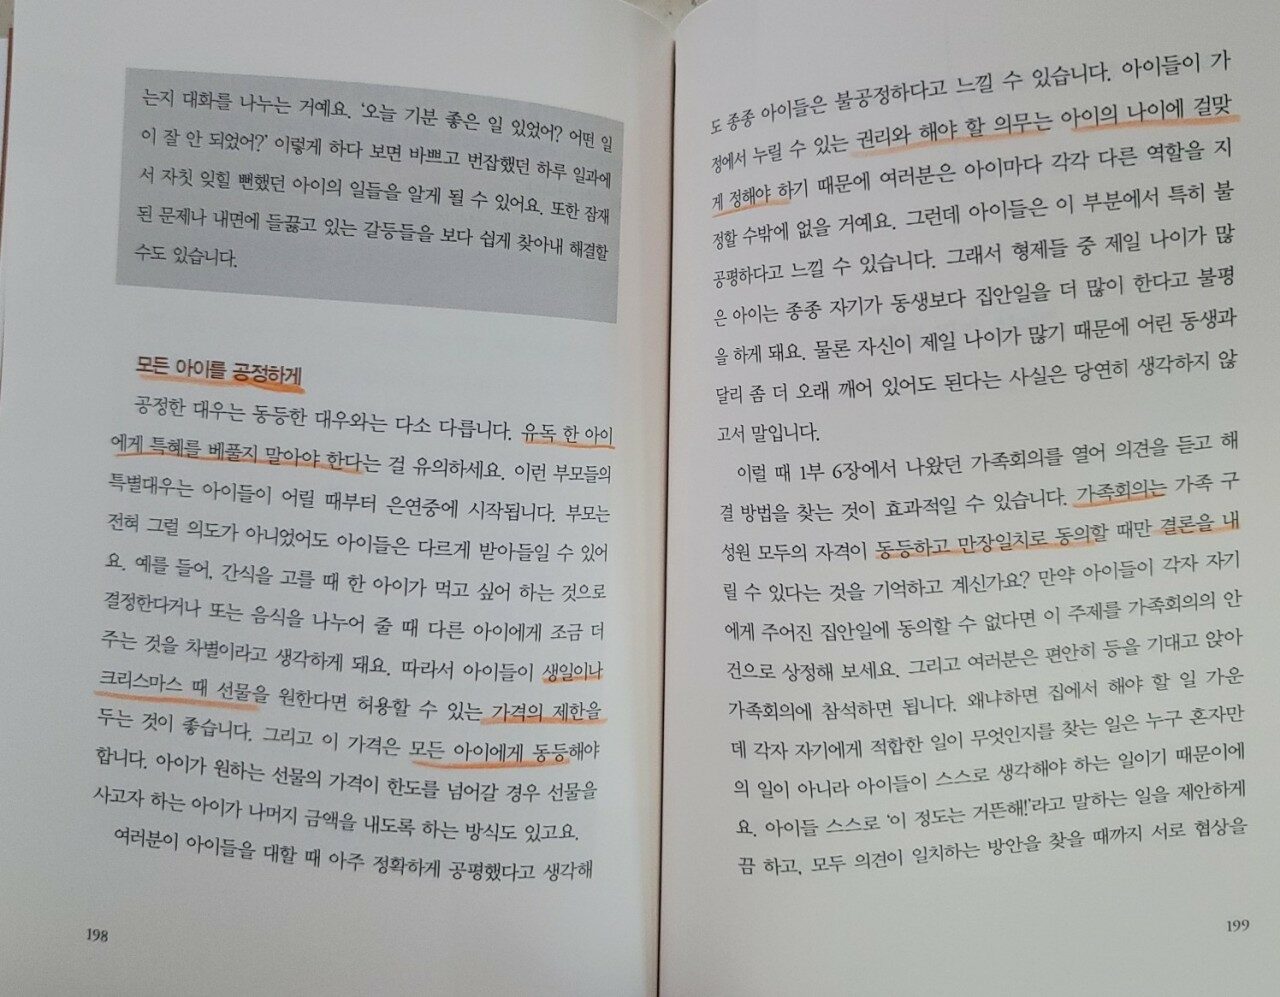 는지 대화를 나누는 거예요. '오늘 기분 좋은 일 있었어? 어떤 일
이 잘 안 되었어?' 이렇게 하다 보면 바쁘고 번잡했던 하루 일과에
서 자칫 잊힐 뻔했던 아이의 일들을 알게 될 수 있어요. 또한 잠재
된 문제나 내면에 들끓고 있는 갈등들을 보다 쉽게 찾아내 해결할
수도 있습니다.
모든 아이를 공정하게
공정한 대우는 동등한 대우와는 다소 다릅니다. 유독 한 아이
에게 특혜를 베풀지 말아야 한다는 걸 유의하세요. 이런 부모들의
특별대우는 아이들이 어릴 때부터 은연중에 시작됩니다. 부모는
전혀 그럴 의도가 아니었어도 아이들은 다르게 받아들일 수 있어
요. 예를 들어, 간식을 고를 때 한 아이가 먹고 싶어 하는 것으로
결정한다거나 또는 음식을 나누어 줄 때 다른 아이에게 조금 더
주는 것을 차별이라고 생각하게 돼요. 따라서 아이들이 생일이나
크리스마스 때 선물을 원한다면 허용할 수 있는 가격의 제한을
두는 것이 좋습니다. 그리고 이 가격은 모든 아이에게 동등해야
합니다. 아이가 원하는 선물의 가격이 한도를 넘어갈 경우 선물을
사고자 하는 아이가 나머지 금액을 내도록 하는 방식도 있고요.
여러분이 아이들을 대할 때 아주 정확하게 공평했다고 생각해
198
도 종종 아이들은 불공정하다고 느낄 수 있습니다. 아이들이 가
정에서 누릴 수 있는 권리와 해야 할 의무는 아이의 나이에 걸맞
게 정해야 하기 때문에 여러분은 아이마다 각각 다른 역할을 지
정할 수밖에 없을 거예요. 그런데 아이들은 이 부분에서 특히 불
공평하다고 느낄 수 있습니다. 그래서 형제들 중 제일 나이가 많
은 아이는 종종 자기가 동생보다 집안일을 더 많이 한다고 불평
을 하게 돼요. 물론 자신이 제일 나이가 많기 때문에 어린 동생과
달리 좀 더 오래 깨어 있어도 된다는 사실은 당연히 생각하지 않
고서 말입니다.
이럴 때 1부 6장에서 나왔던 가족회의를 열어 의견을 듣고 해
결 방법을 찾는 것이 효과적일 수 있습니다. 가족회의는 가족 구
성원 모두의 자격이 동등하고 만장일치로 동의할 때만 결론을 내
릴 수 있다는 것을 기억하고 계신가요? 만약 아이들이 각자 자기
에게 주어진 집안일에 동의할 수 없다면 이 주제를 가족회의의 안
건으로 상정해 보세요. 그리고 여러분은 편안히 등을 기대고 앉아
가족회의에 참석하면 됩니다. 왜냐하면 집에서 해야 할 일 가운
데 각자 자기에게 적합한 일이 무엇인지를 찾는 일은 누구 혼자만
의 일이 아니라 아이들이 스스로 생각해야 하는 일이기 때문이에
요. 아이들 스스로 '이 정도는 거뜬해!'라고 말하는 일을 제안하게
끔 하고, 모두 의견이 일치하는 방안을 찾을 때까지 서로 협상을
199